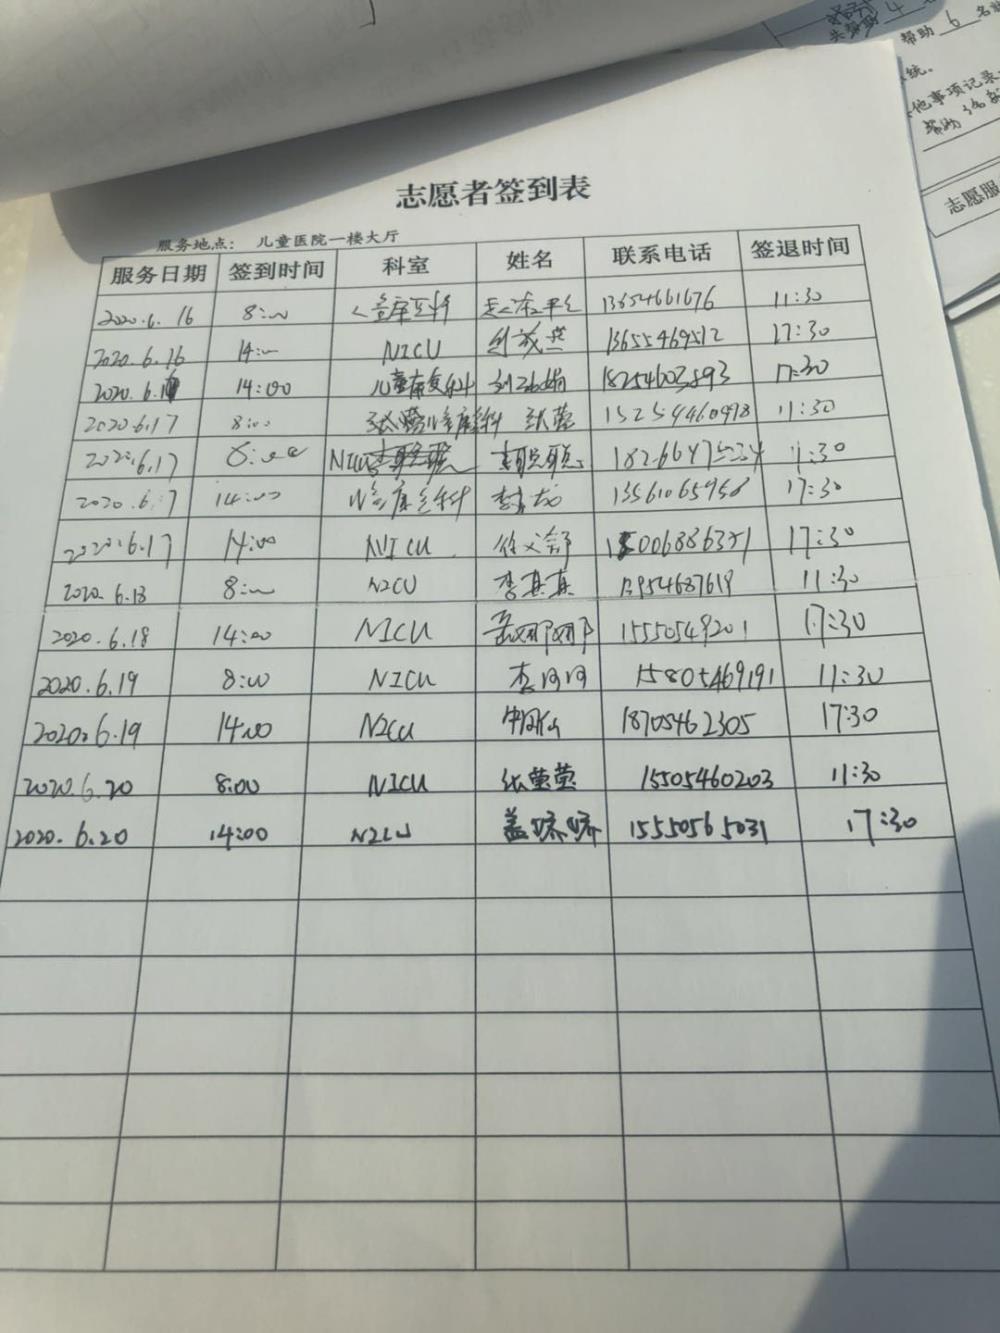 共帮助 4
帮助 6 名
统。
他事项记录
帮助 3名
志愿服
志愿者签到表
服务地点： 儿童医院一楼大厅
服务日期 签到时间 科室 姓名 联系电话 签退时间
2020.6.16 8:00 13654661676 11:30
2020.6.16 14:00 NICU 13655469512 17:30
2020.6.16 14:00 儿童康复科 18254603593 17:30
2020.6.17 8:00 儿童康复科 张莹 15254460978 11:30
2020.6.17 8:00 NICU 李聪聪 11:30
2020.6.17 14:00 儿童康复科 13561065958 17:30
2020.6.17 14:00 NICU 徐义舒 15006886371 17:30
2020.6.18 8:00 NICU 李真真 13954687619 11:30
2020.6.18 14:00 NICU 岳娜娜 15550549201 17:30
2020.6.19 8:00 NICU 李河河 15805469191 11:30
2020.6.19 14:00 NICU 18705462305 17:30
2020.6.20 8:00 NICU 张莹莹 15505460203 11:30
2020.6.20 14:00 NICU 盖娇娇 15550565031 17:30